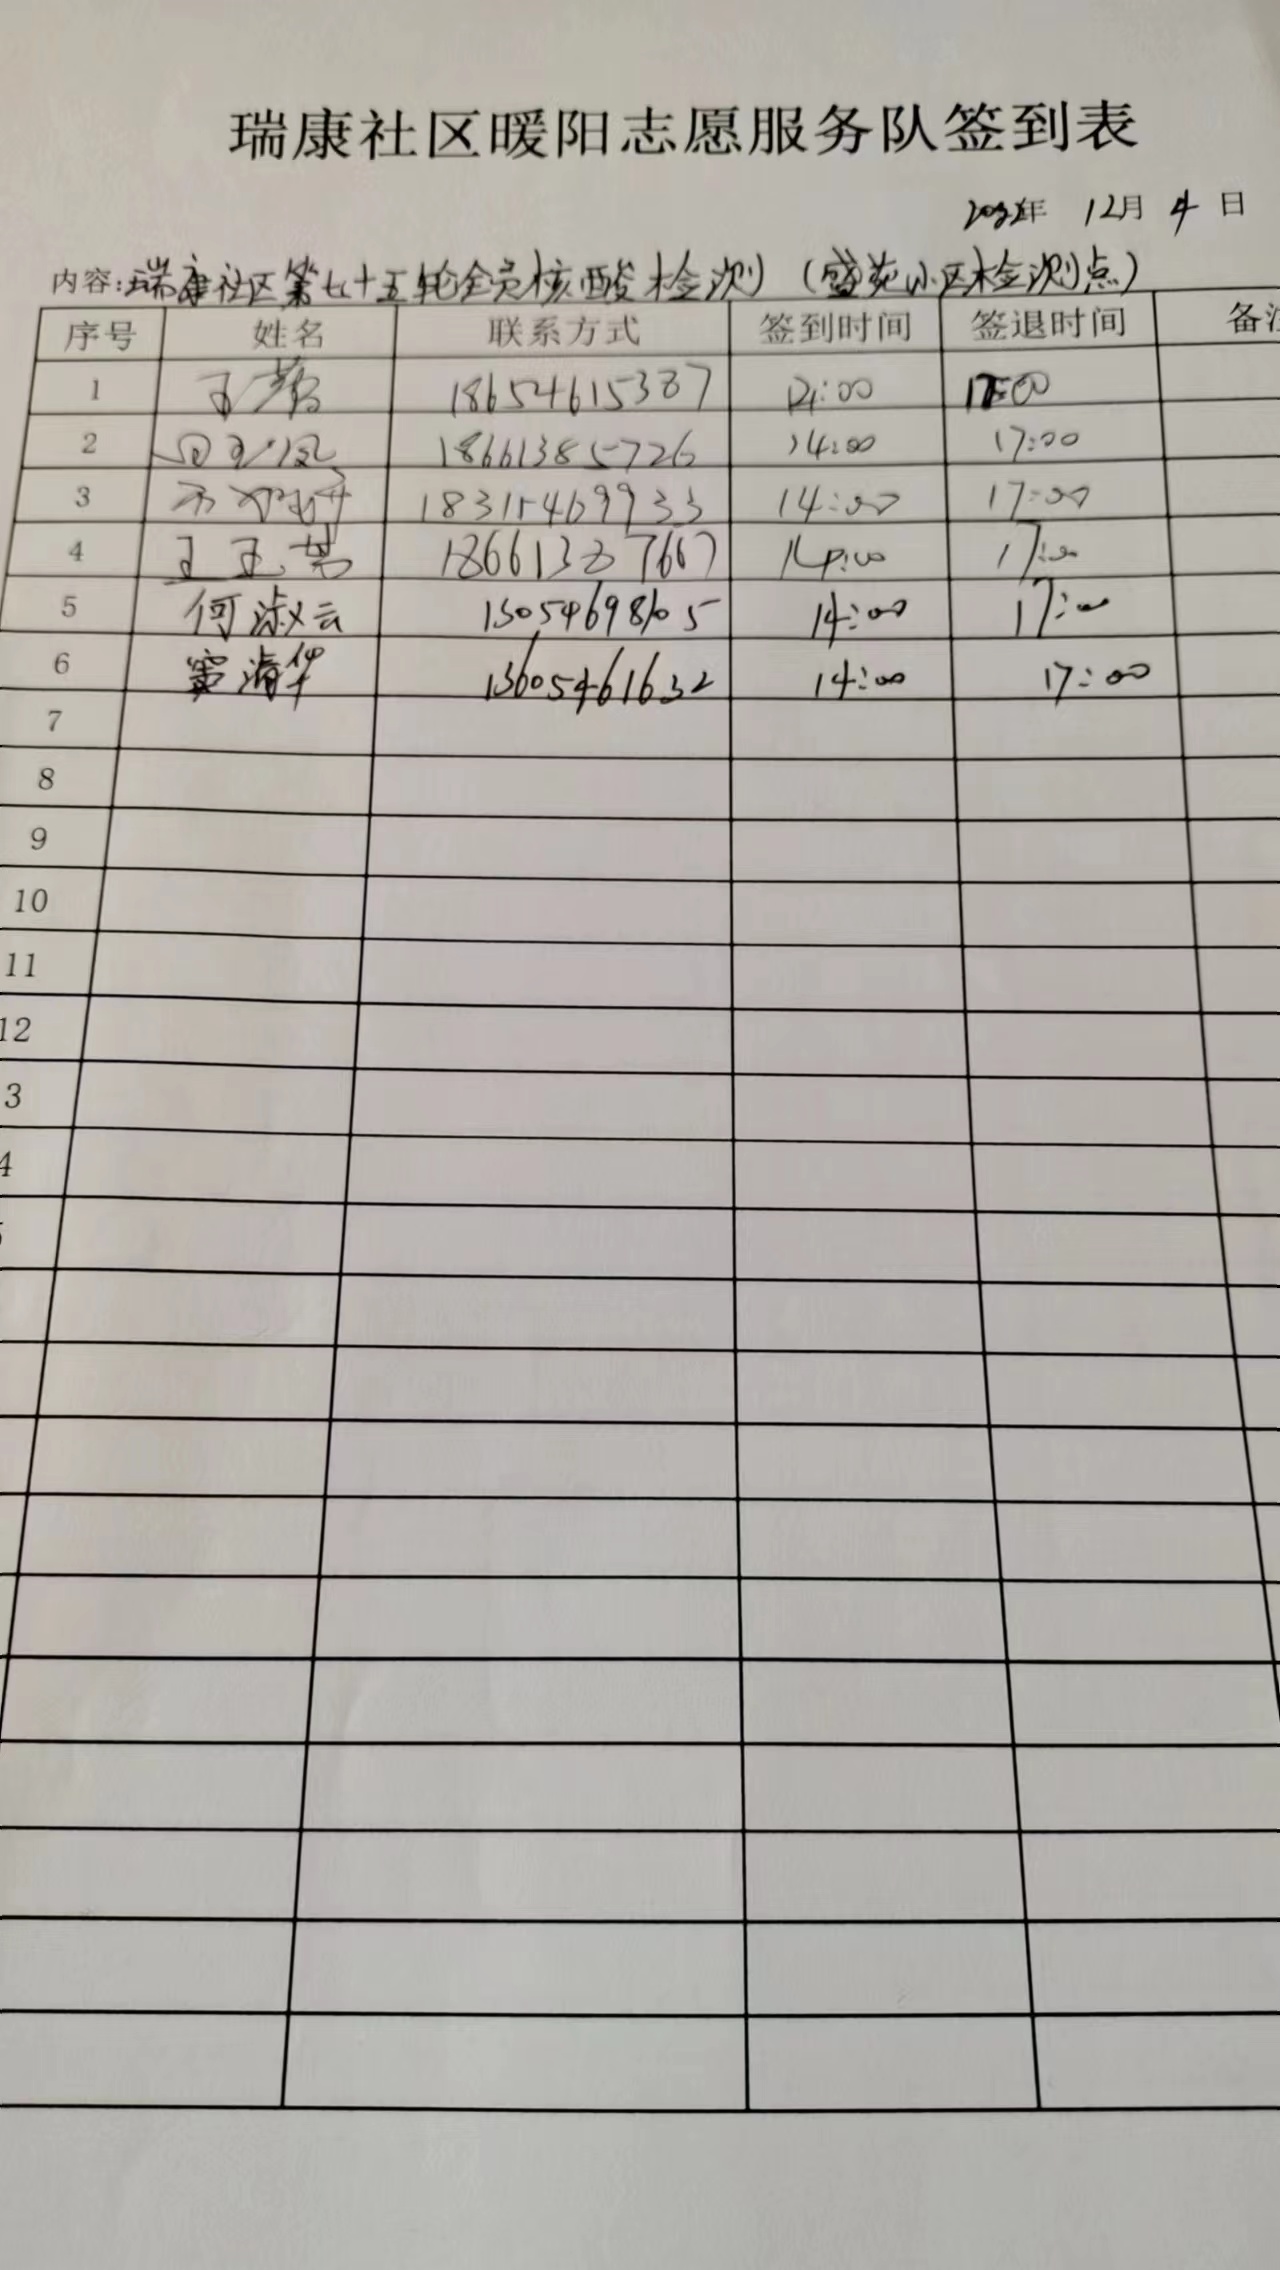 瑞康社区暖阳志愿服务队签到表
2022年 12月 4 日
内容:瑞康社区第七十五轮全员核酸检测（盛苑小区检测点）
序号 姓名 联系方式 签到时间 签退时间 备注
1 王 18654615387 14:00 17:00
2 18661385726 14:00 17:00
3 18315469933 14:00 17:00
4 王玉 18661387667 14:00 17:00
5 何淑云 13054698105 14:00 17:00
6 窦清华 13605461632 14:00 17:00
7
8
9
10
11
12
3
4